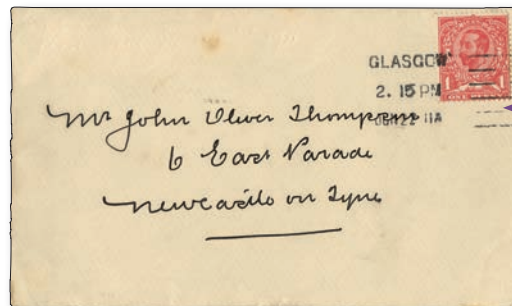 GLASGOW
2. 15 PM
22 11A
1 1
Mr John Oliver Thompson
6 East Parade
Newcastle on Tyne